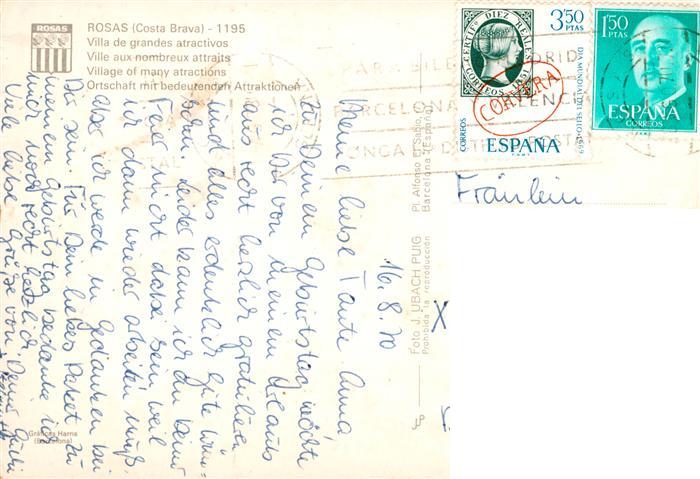 ROSAS
ROSAS (Costa Brava) - 1195
Villa de grandes atractivos
Ville aux nombreux attraits
Village of many atractions
Ortschaft mit bedeutenden Attraktionen
16. 8. 70
Meine liebe Tante Anna
zu Deinem Geburtstag möchte
ich Dir von meinem Urlaub
aus recht herzlich gratulieren
und alles erdenklich Gute wün-
schen. Leider kann ich zu Deiner
Feier nicht dabei sein weil
ich dann wieder arbeiten muß.
Aber ich werde in Gedanken bei
Dir sein. Für Dein liebes Paket zu
meinem Geburtstag bedanke ich
mich noch recht herzlich.
Viele liebe Grüße von Deiner
Fräulein
Gráficas Harria
(Barcelona)
Foto J. UBACH PUIG
Prohibida la reproducción
Pl. Alfonso El Sabio,
Barcelona (España)
CERTIFdo DIEZ REALES
CORREOS 1851
3'50
PTAS
CORREOS
ESPAÑA
DIA MUNDIAL DEL SELLO-1969
F.N.M.T.
CORVERA
1'50
PTAS
ESPAÑA
CORREOS
BARCELONA